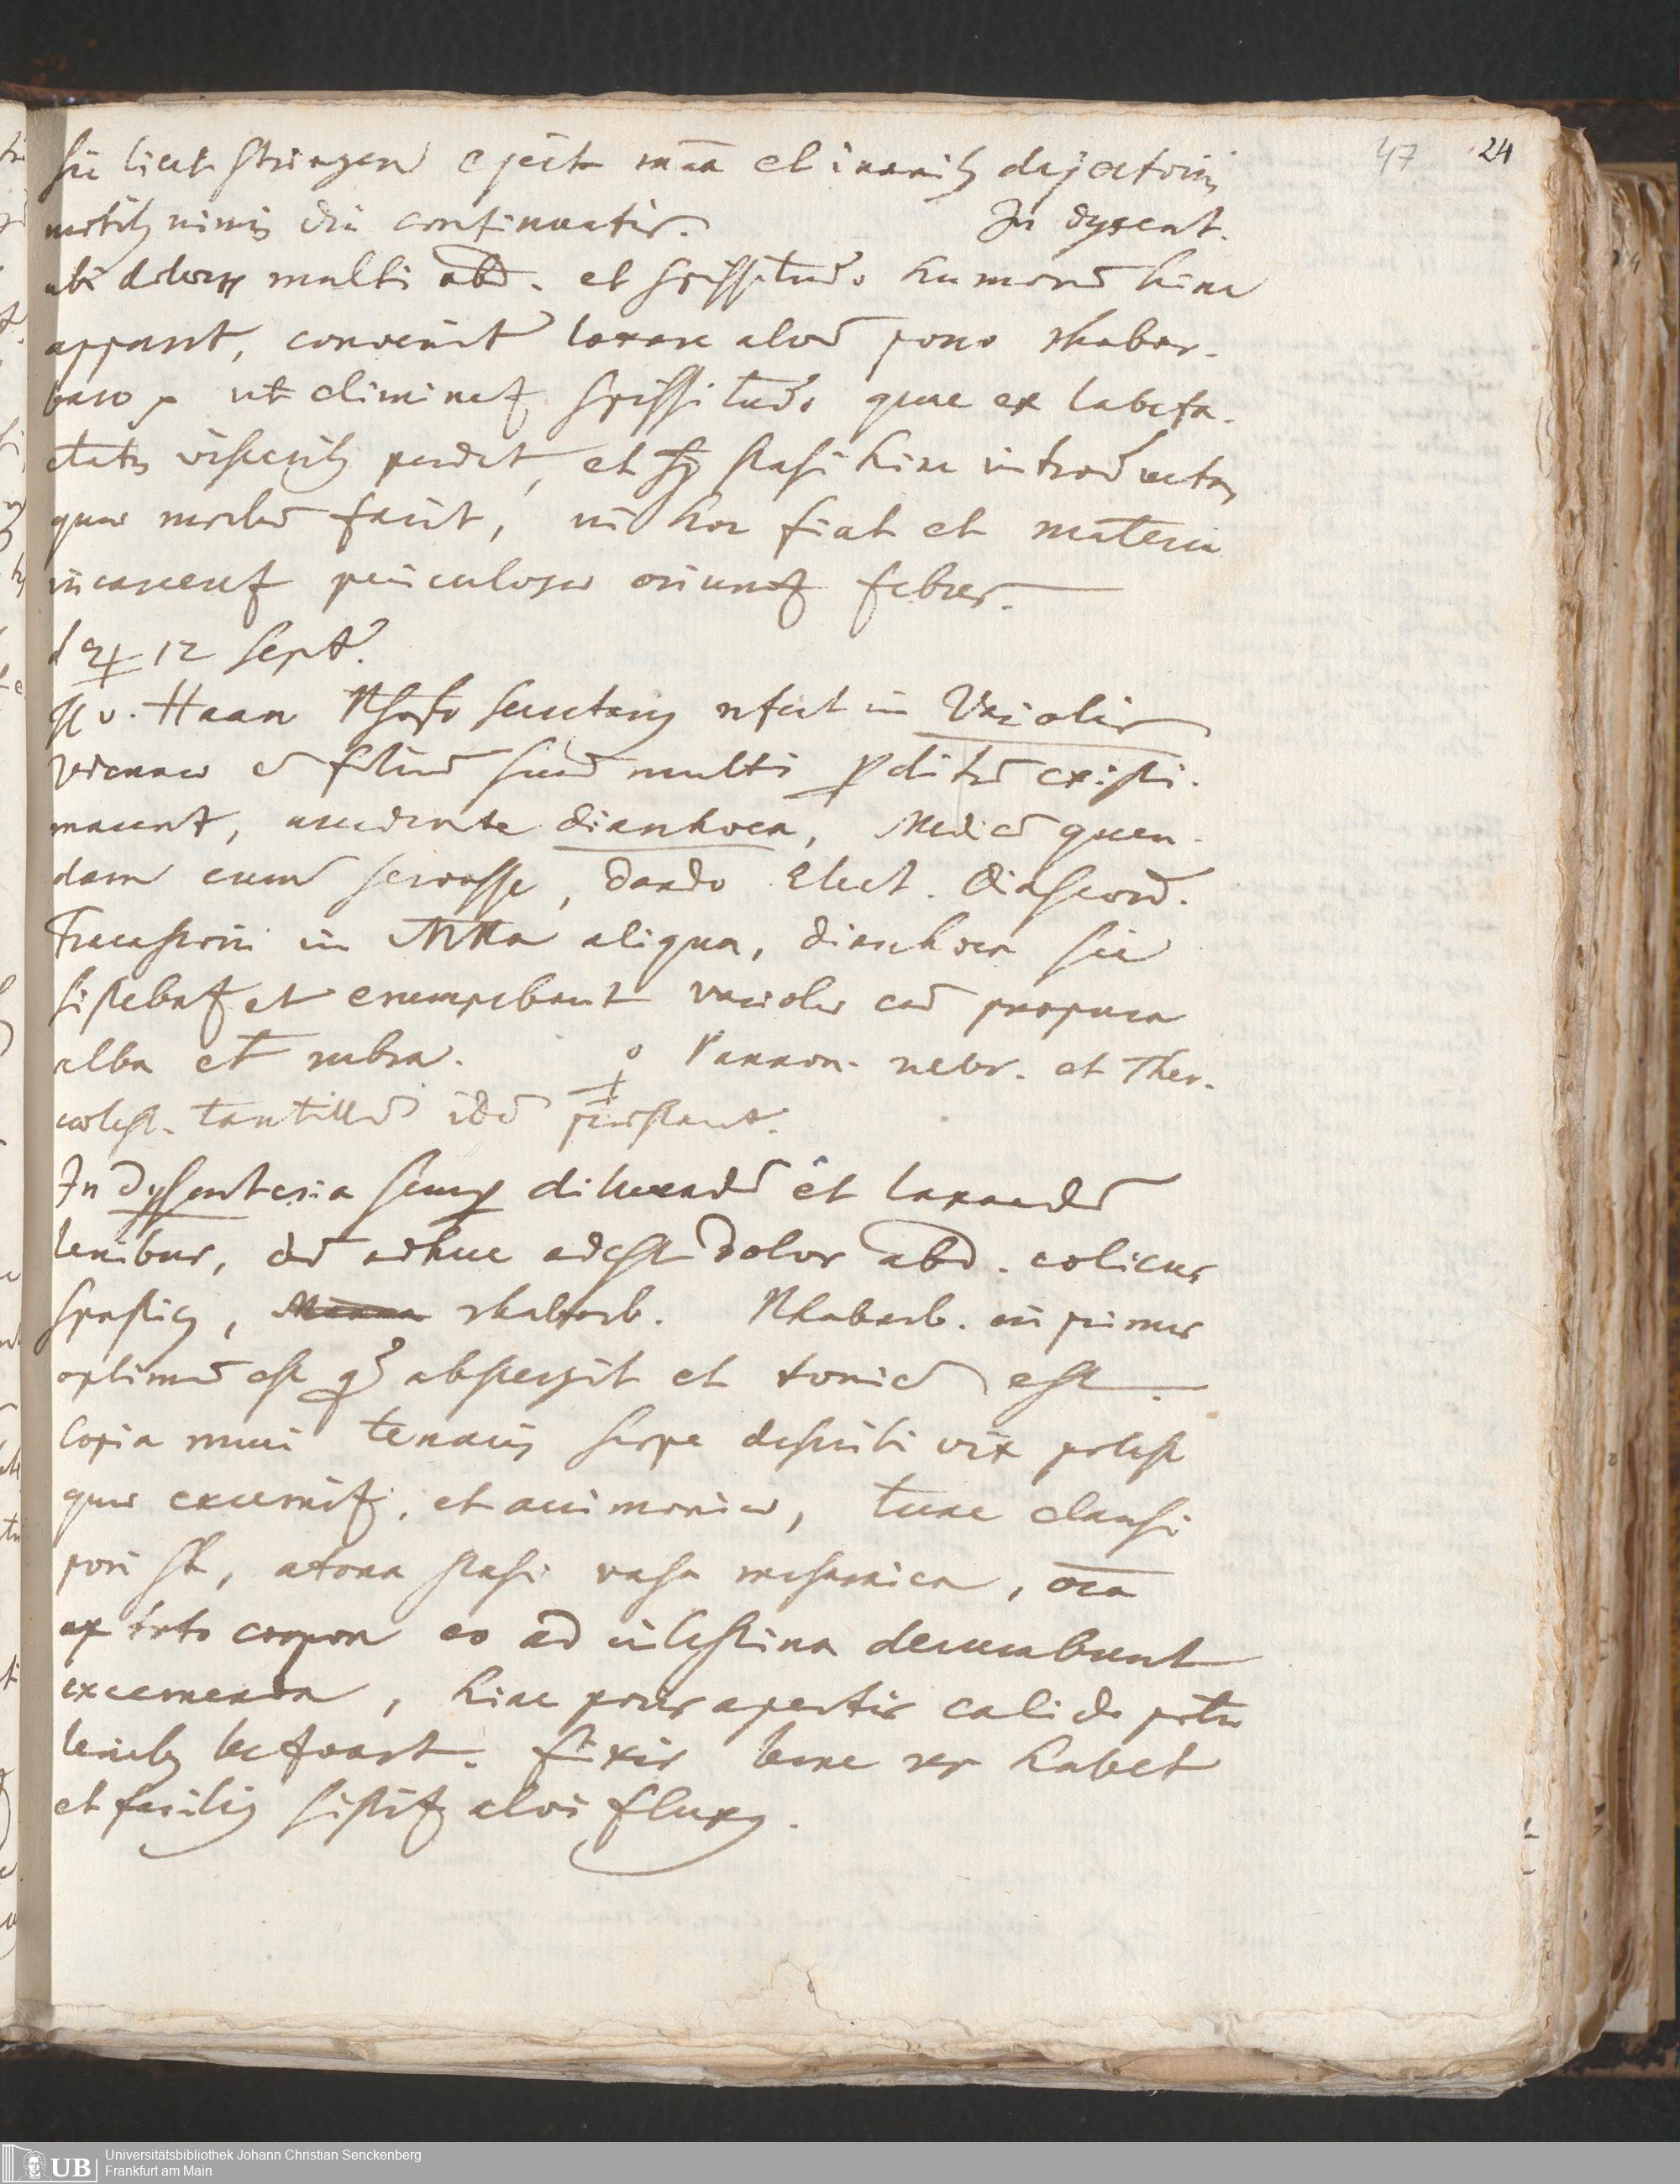 47 24
sic licet stringere ejecta mãa et inanib dejectoriis
motib nimis diu continuatis. In dysent.
ubi dolores multi abd. et spissitudo humorũ hinc
apparet, convenit laxare alvũ porro rhabar-
baro ut eliminet spissitudo quae ex labefa-
ctatis viscerib pendet, et stasi hinc introducta,
quae morbũ facit, ni hoc fiat et materia
incarceret periculosae oriunt febres.
d ♃ 12 Sept.
H v. Haan secretarius refert in Variolis
Viennae filiũ suũ multi perditũ existi-
marent, accedente diarrhoea, Medicũ quen-
dam eum servasse, dando Elect. Diascord.
Fracastorii in aliqua, diarrhoea sic
sistebat et erumpebant variolae cũ purpura
alba et rubra. Pannon. rubr. et Ther.
coelest. tantillũ idẽ praestant.
In Dysenteria semper diluendũ et laxandũ
lenibus, dũ adhuc adest dolor abd. colicus
spasticus, Manna rhabarb. Rhabarb. in primis
optimũ est abstergit et tonicũ est.
Copia muci tenacis saepe describi vix potest
quae excernit, et acrimoniae, tunc clausi
pori st, atona stasi vasa mesaraica, oĩa
ex toto corpore eo ad intestina decumbunt
excernenda, hinc poris apertis calido potu
lenib bene res habet
et facilius sistit alvi fluxus.
Universitätsbibliothek Johann Christian Senckenberg
Frankfurt am Main
UB